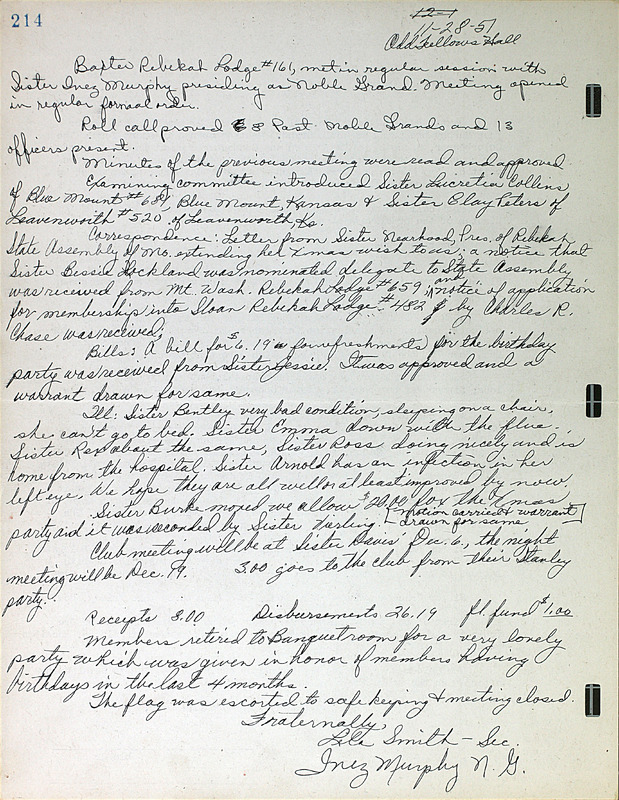 214
12-1
11-28-51
Odd Fellows Hall
Baxter Rebekah Lodge #161, met in regular session with
Sister Inez Murphy presiding as Noble Grand. Meeting opened
in regular formal order.
Roll call proved 8 Past Noble Grands and 13
officers present.
Minutes of the previous meeting were read and approved
Examining committee introduced Sister Lucretia Collins
of Blue Mount #681 Blue Mount, Kansas & Sister Elay Peters of
Leavenworth #520 of Leavenworth, Ks.
Correspondence: Letter from Sister Nearhood, Pres. of Rebekah
State Assembly of Mo. extending her Xmas wish to us; a notice that
Sister Bessie Lockland was nominated delegate to State Assembly
was received from Mt. Wash. Rebekah Lodge #659; and notice of application
for membership into Sloan Rebekah Lodge #482 by Charles R.
Chase was received;
Bills: A bill for $6.19 for refreshments for the birthday
party was received from Sister Jessie. It was approved and a
warrant drawn for same.
Ill: Sister Bentley very bad condition, sleeping on a chair,
she can't go to bed. Sister Emma down with the flue.
Sister Rea about the same, Sister Ross doing nicely and is
home from the hospital. Sister Arnold has an infection in her
left eye. We hope they are all well or at least improved by now.
Sister Burke moved we allow $20.00 for the Xmas
party and it was seconded by Sister [motion carried & warrant
drawn for same]
Club meeting will be at Sister Davis' Dec. 6., the night
meeting will be Dec. 19. 3.00 goes to the club from their Stanley
party.
Receipts 3.00 Disbursements 26.19 fl. fund $1.00
Members retired to Banquet room for a very lovely
party which was given in honor of members having
birthdays in the last 4 months.
The flag was escorted to safe keeping & meeting closed.
Fraternally,
Lela Smith - Sec.
Inez Murphy N. G.